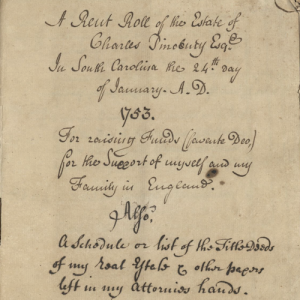 A Rent Roll of the Estate of
Charles Pinckney Esqr.
In South Carolina the 24th day
of January. A.D.
1753.
For raising Funds (favente Deo,)
for the Support of myself and my
Family in England.
Also,
A Schedule or list of the Title Deeds
of my Real Estate & other papers
left in my Attornies hands.